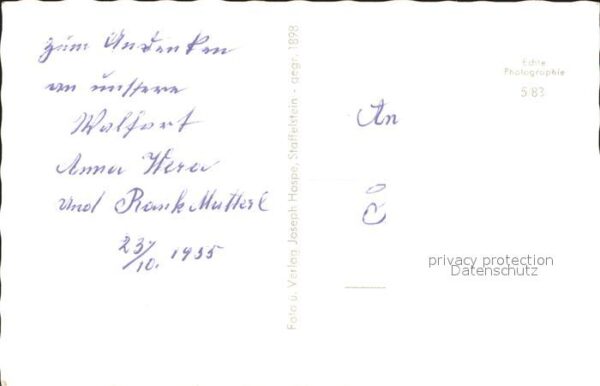 zum Andenken
an unssere
Walfart
Anna Wera
und Rank Mutterl
23/10. 1955
Foto u. Verlag Joseph Haspe, Staffelstein - gegr. 1898
Echte
Photographie
5/83
An
privacy protection
Datenschutz